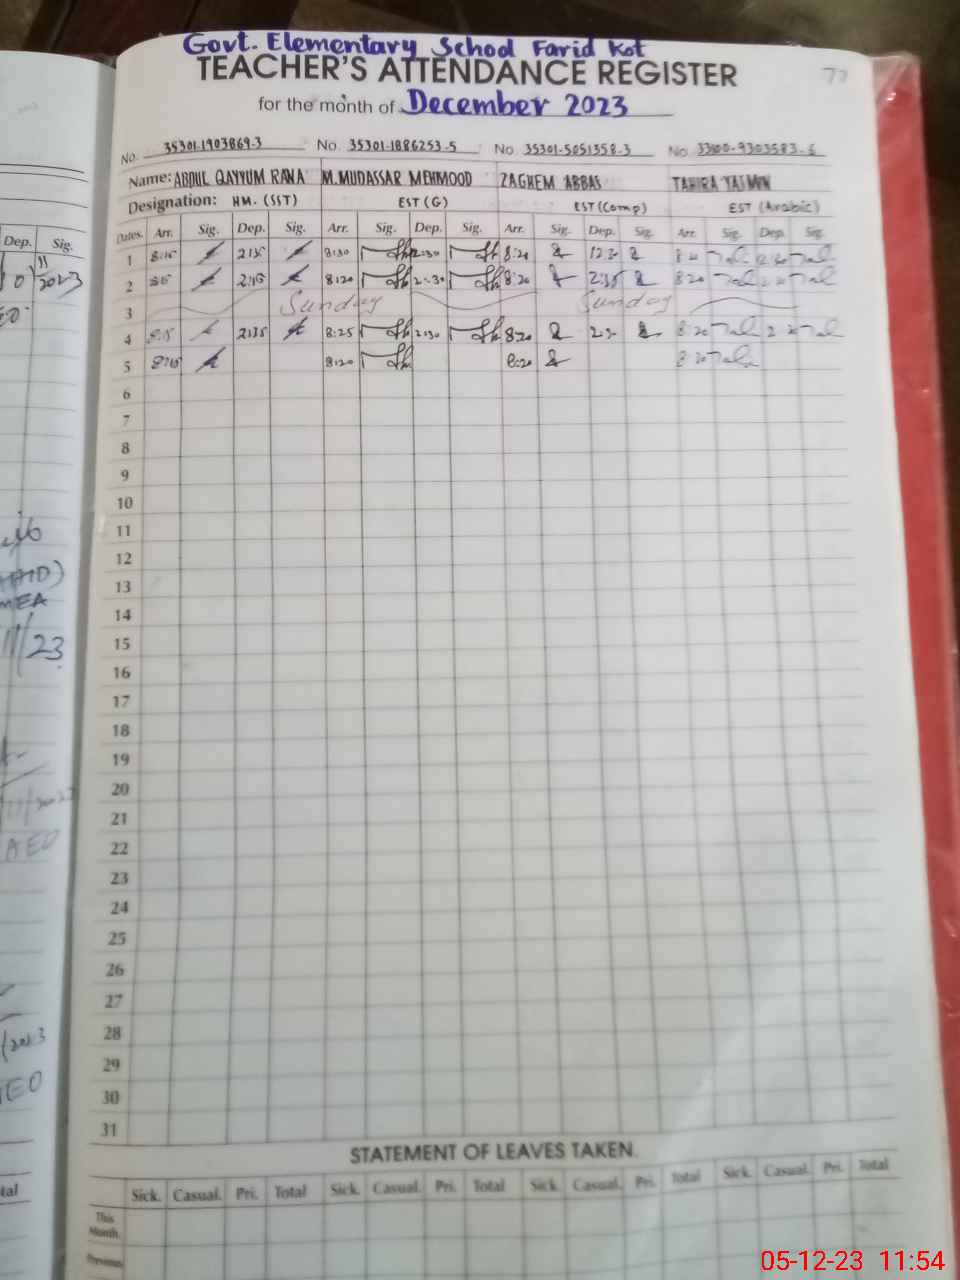 Govt. Elementary School Farid Kot
TEACHER'S ATTENDANCE REGISTER 77
for the month of December 2023
No. 35301-1903869-3 No. 35301-1886253-5 No. 35301-5051358-3 No. 33100-9303583-6
Name: ABDUL QAYYUM RANA M. MUDASSAR MEHMOOD ZAGHEM ABBAS TAHIRA YASMIN
Designation: HM. (SST) EST (G) EST (Comp) EST (Arabic)
Dates. Arr. Sig. Dep. Sig. Arr. Sig. Dep. Sig. Arr. Sig. Dep. Sig. Arr. Sig. Dep. Sig.
1 8:15 2:35 8:30 2:30 8:20 12:30 8 20
2 2:35 8:20 2:30 8:20 2:35 8 20
3 Sunday Sunday
4 8:15 2:35 8:25 2:30 8:20 8 20
5 8:15 8:20 8:20 8 20
6
7
8
9
10
11
12
13
14
15
16
17
18
19
20
21
22
23
24
25
26
27
28
29
30
31
STATEMENT OF LEAVES TAKEN.
Sick. Casual. Pri. Total Sick. Casual. Pri. Total Sick. Casual. Pri. Total Sick. Casual. Pri. Total
This
Month.
Previous
Dep. Sig.
11
2023
MEA
11/23
AEO
05-12-23 11:54